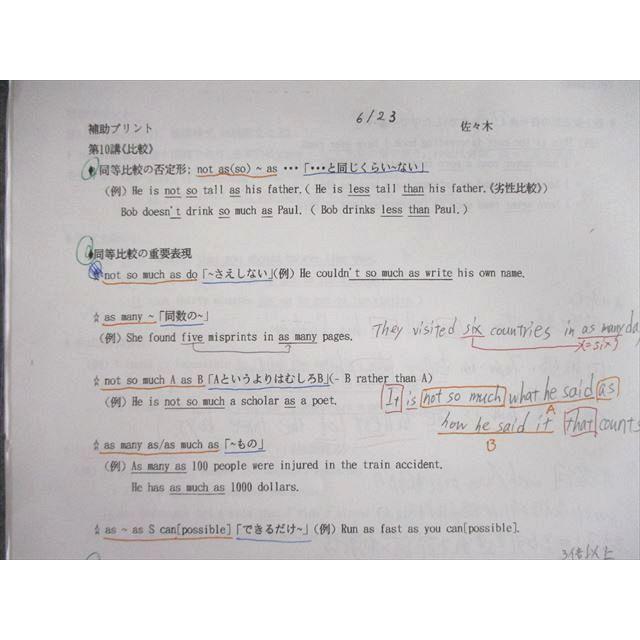 6/23
補助プリント 佐々木
第10講《比較》
◆同等比較の否定形: not as(so) ~ as … 「…と同じくらい~ない」
(例) He is not so tall as his father. ( He is less tall than his father.《劣性比較》)
Bob doesn't drink so much as Paul. ( Bob drinks less than Paul. )
◆同等比較の重要表現
☆ not so much as do 「~さえしない」(例) He couldn't so much as write his own name.
☆ as many ~ 「同数の~」
(例) She found five misprints in as many pages.
They visited six countries in as many da
x=six
☆ not so much A as B 「AというよりはむしろB」(= B rather than A)
(例) He is not so much a scholar as a poet.
It is not so much what he said as
A
how he said it that counts
B
☆ as many as/as much as 「~もの」
(例) As many as 100 people were injured in the train accident.
He has as much as 1000 dollars.
☆ as ~ as S can[possible] 「できるだけ~」 (例) Run as fast as you can[possible].